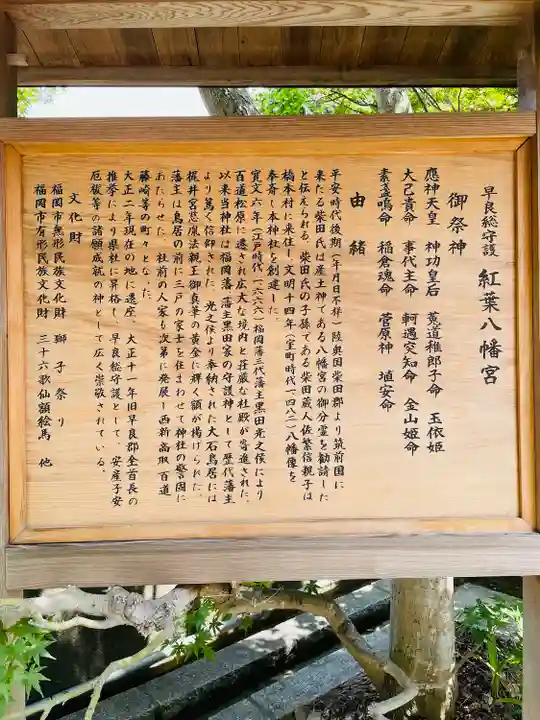 早良総守護 紅葉八幡宮
御祭神
應神天皇 神功皇后 菟道稚郎子命 玉依姫
大己貴命 事代主命 軻遇突知命 金山姫命
素盞嗚命 稲倉魂命 菅原神 埴安命
由緒
平安時代後期(年月日不祥)陸奥国柴田郡より筑前国に
来たる柴田氏は産土神である八幡宮の御分霊を勧請した
と伝えられる。柴田氏の子孫である柴田蔵人佐繁信親子は
橋本村に来住し、文明十四年(室町時代一四八二)八幡像を
奉斎し本神社を創建した。
寛文六年(江戸時代一六六六)福岡藩三代藩主黒田光之侯により
百道松原に遷され広大な境内と荘厳な社殿が寄進された。
以来当神社は福岡藩、藩主黒田家の守護神として歴代藩主
より篤く信仰された。光之侯より奉納された大石鳥居には
梶井宮慈胤法親王御真筆の黄金に輝く額が掲げられた。
藩主は鳥居の前に三戸の家士を住まわせて神社の警固に
あたらせた。社前の人家も次第に発展し西新高取百道
藤崎等の町々となった。
大正二年現在の地に遷座、大正十一年旧早良郡全首長の
推挙により県社に昇格し、早良総守護として、安産子安
厄祓等の諸願成就の神として広く崇敬されている。
文化財
福岡市無形民族文化財 獅子祭り
福岡市有形民族文化財 三十六歌仙額絵馬 他